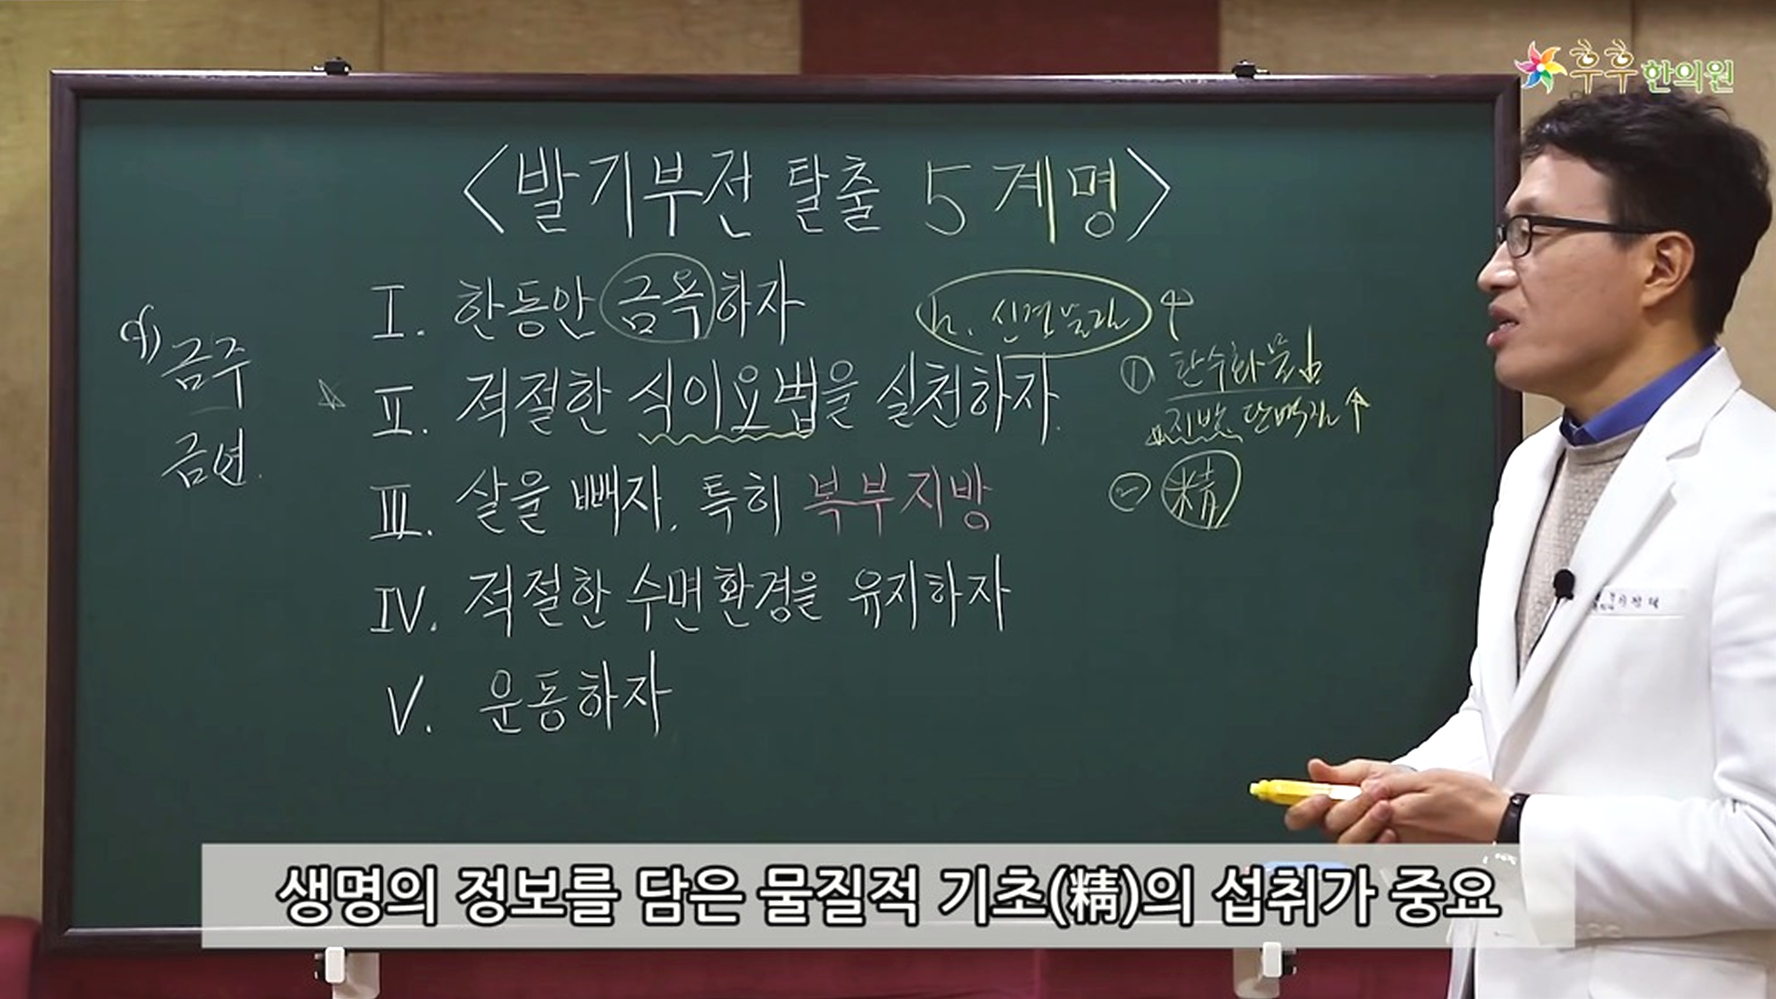 후후한의원
<발기부전 탈출 5계명>
I. 한동안 금욕하자
h. 신경물질 ↑
cf) 금주
금연.
II. 적절한 식이요법을 실천하자.
① 탄수화물↓
지방, 단백질↑
② 精
III. 살을 빼자, 특히 복부지방
IV. 적절한 수면환경을 유지하자
V. 운동하자
생명의 정보를 담은 물질적 기초(精)의 섭취가 중요